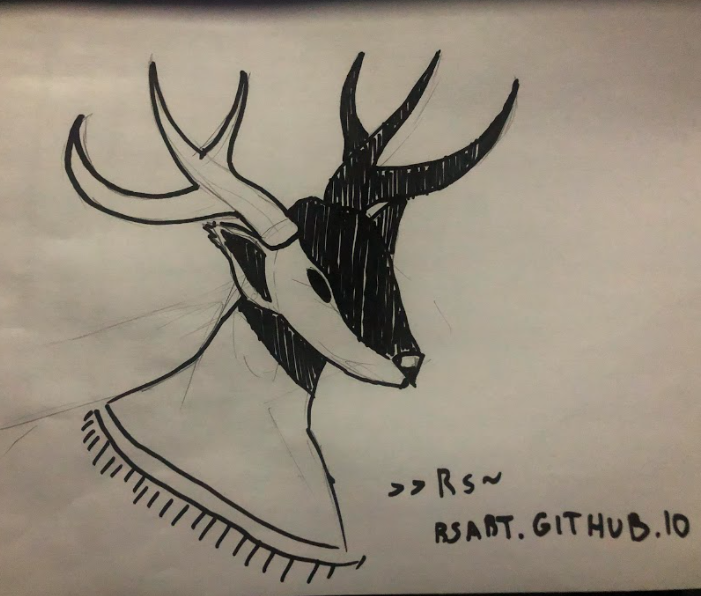 >> Rs~
RSABT.GITHUB.IO